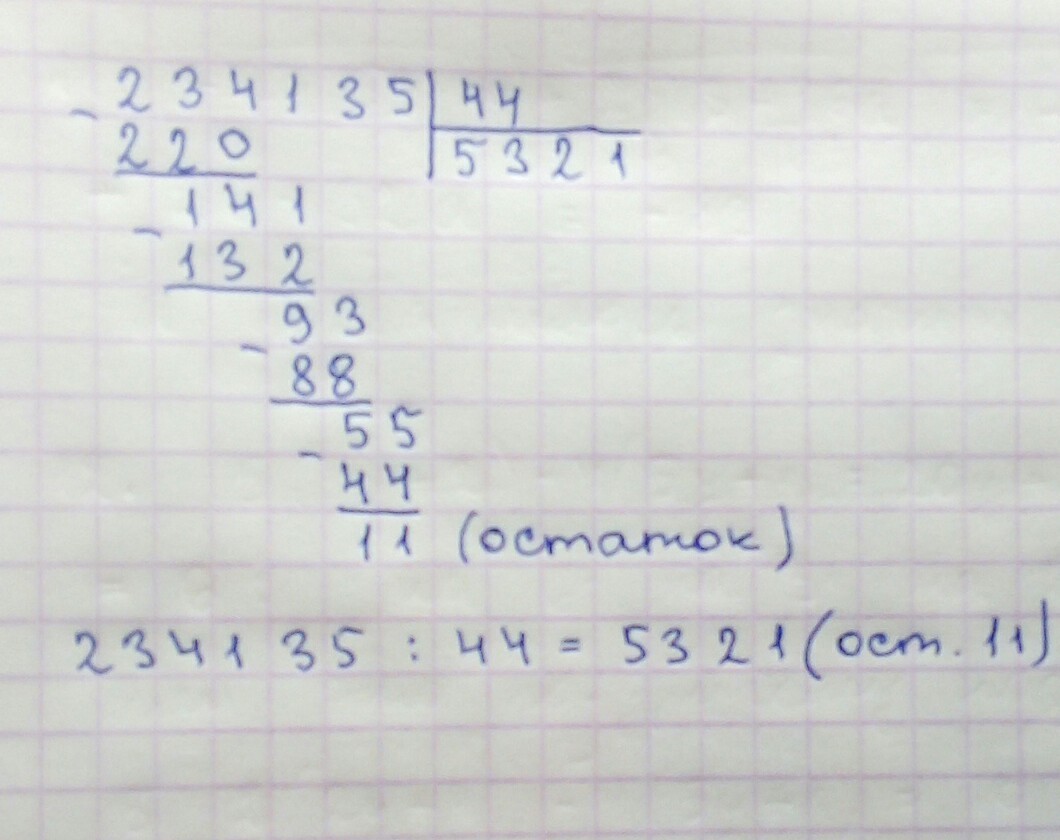 - 234135 | 44
220 | 5321
- 141
132
- 93
88
- 55
44
11 (остаток)
234135 : 44 = 5321 (ост. 11)